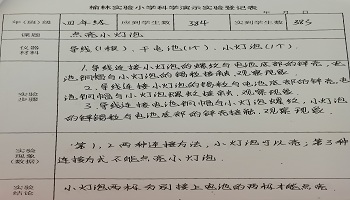 榆林实验小学科学演示实验登记表
年 月 日
年(班)级 四年级 应到学生数 384 实到学生数 385
课题 点亮小灯泡
仪器材料 导线(1根)、干电池(1节)、小灯泡(1个).
1.导线连接小灯泡的螺纹与电池底部的锌壳,电
池铜帽与小灯泡的锡粒接触,观察现象.
实验步骤 2.导线连接小灯泡的锡粒与电池底部的锌壳,电
池铜帽与小灯泡螺纹接触,观察现象.
3.导线连接电池铜帽与小灯泡螺纹,小灯泡
的锡粒与电池底部的锌壳接触,观察现象.
实验现象(数据) 第1,2两种连接方法,小灯泡可以亮;第3种
连接方式不能点亮小灯泡.
实验结论 小灯泡两极分别接上电池的两极才能亮.